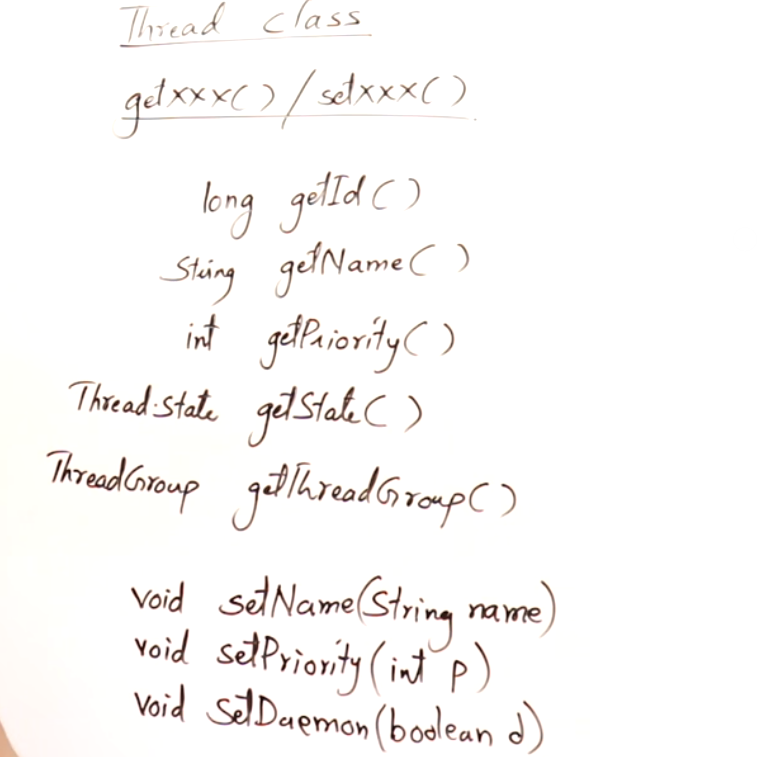 Thread class
getxxx() / setxxx()
long getId()
String getName()
int getPriority()
Thread.State getState()
ThreadGroup getThreadGroup()
void setName(String name)
void setPriority(int p)
void SetDaemon(boolean d)